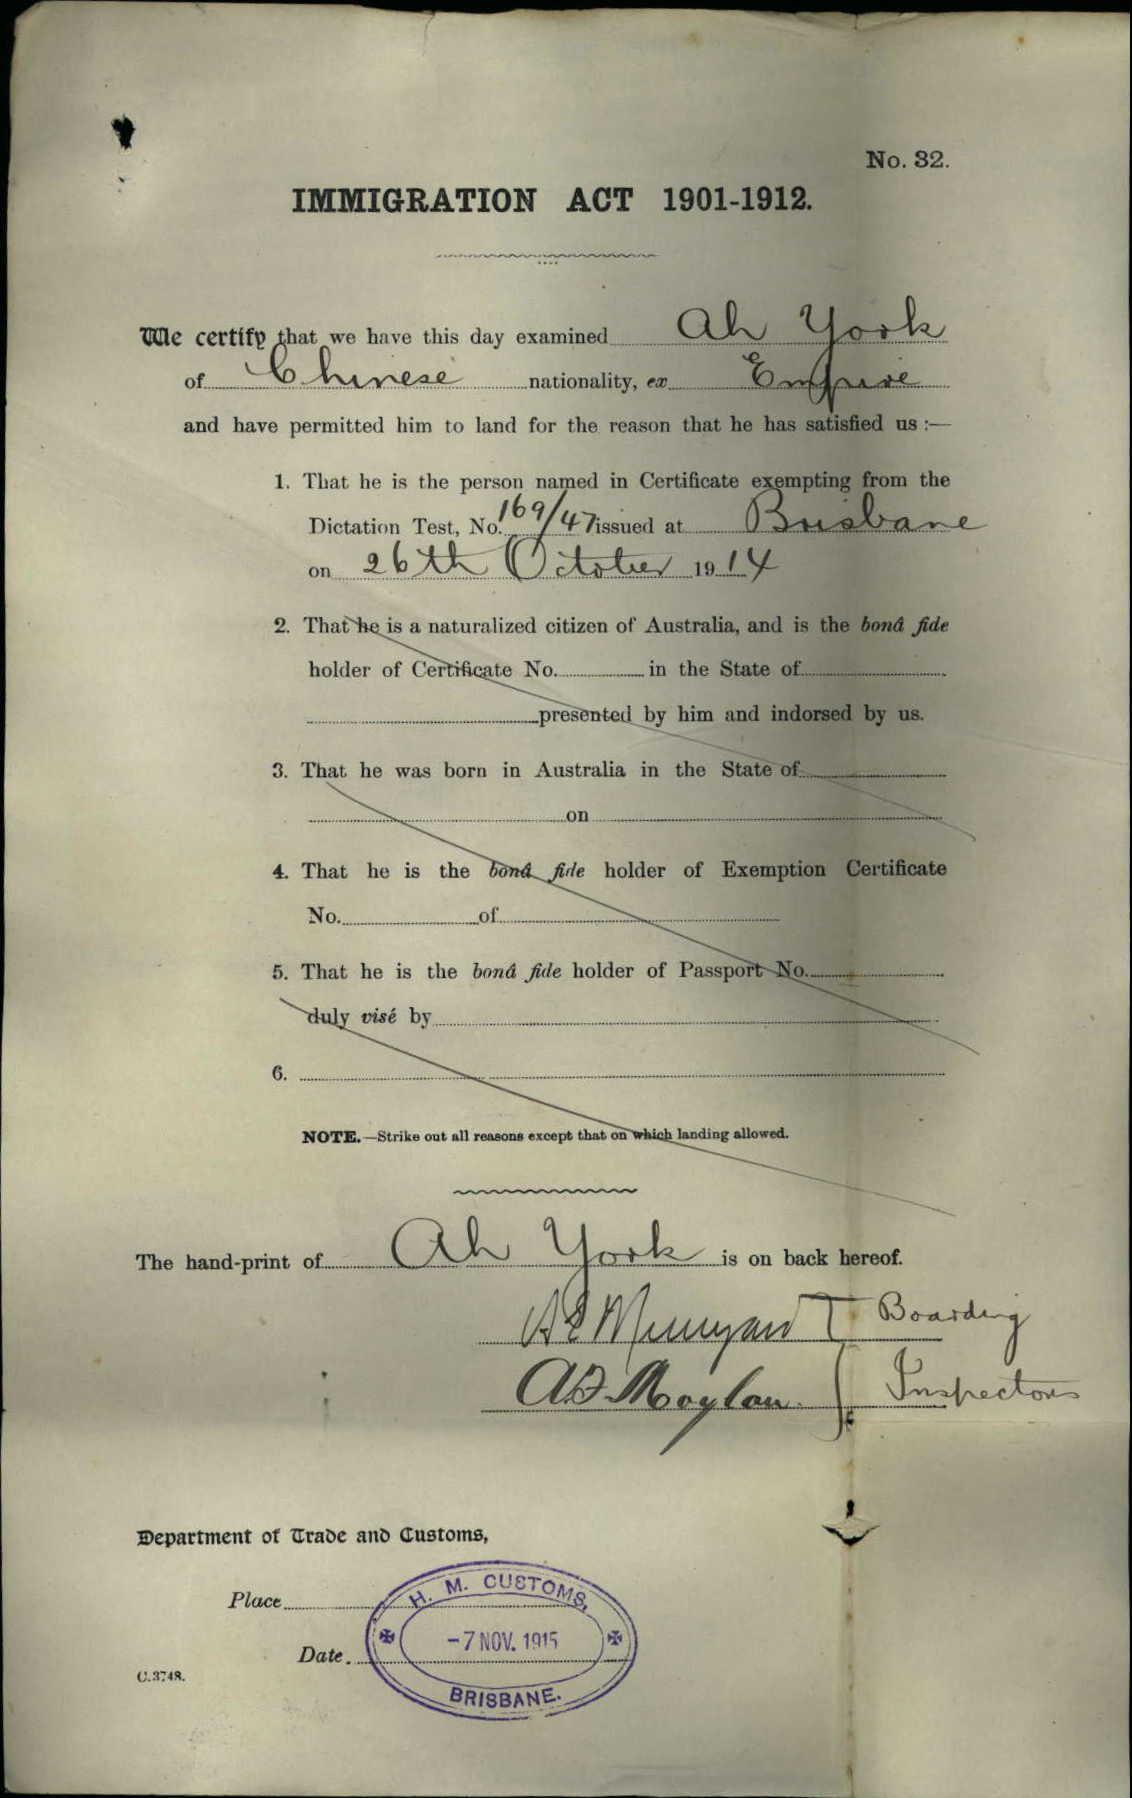 No. 32.
IMMIGRATION ACT 1901-1912.
We certify that we have this day examined Ah York
of Chinese nationality, ex Empire
and have permitted him to land for the reason that he has satisfied us :—
1. That he is the person named in Certificate exempting from the
Dictation Test, No. 169/47 issued at Brisbane
on 26th October 1914
2. That he is a naturalized citizen of Australia, and is the bonâ fide
holder of Certificate No. in the State of
presented by him and indorsed by us.
3. That he was born in Australia in the State of
on
4. That he is the bonâ fide holder of Exemption Certificate
No. of
5. That he is the bonâ fide holder of Passport No.
duly visé by
6.
NOTE.—Strike out all reasons except that on which landing allowed.
The hand-print of Ah York is on back hereof.
Boarding
Moylan Inspectors
Department of Trade and Customs,
Place
Date.
H. M. CUSTOMS,
-7 NOV. 1915
BRISBANE.
C.3748.